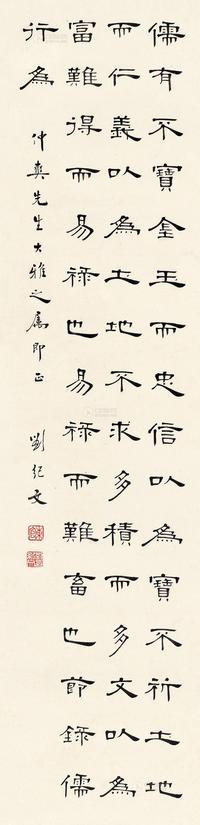 儒有不寶金玉而忠信以為寶不祈土地
而仁義以為土地不求多積而多文以為
富難得而易祿也易祿而難畜也節錄儒
行為
仲爽先生大雅之屬即正
劉紀文